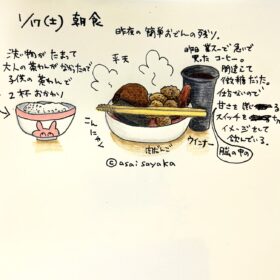 1/17(土) 朝食
昨夜の簡単おでんの残り。
洗い物がたまって
大人の茶わんがなかったので
子供の茶わんで
2杯おかわり
平天
こんにゃく
ウインナー
©asaisayaka
昨日業スーで急いで
買ったコーヒー。
間違えて
微糖だった。
仕方ないので
甘さを
スイッチを
イメージをして
飲んでいる。
脳の中の